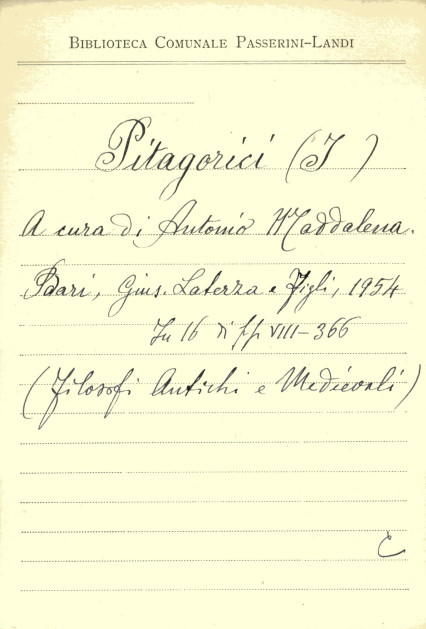 BIBLIOTECA COMUNALE PASSERINI-LANDI
Pitagorici (I)
A cura di Antonio Maddalena.
Bari, Gius. Laterza e Figli, 1954
In 16 di pp VIII-366
(Filosofi Antichi e Medievali)
C